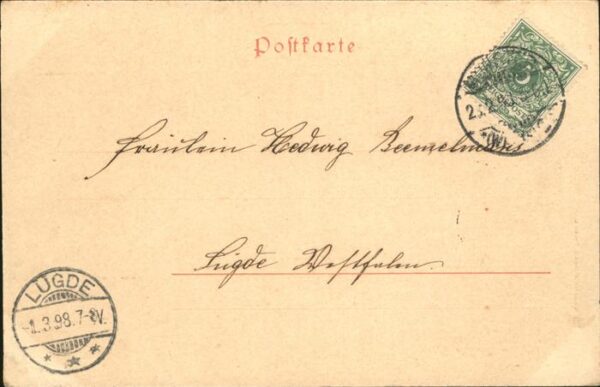 Postkarte
Fräulein Hedwig
Lügde Westfalen.
LÜGDE
1.3.98.7-8V.